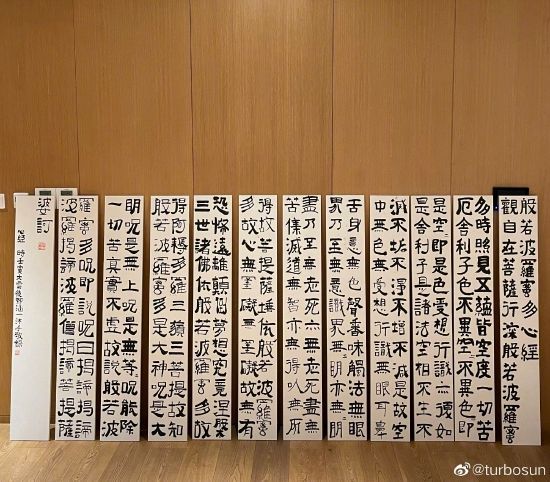 般若波羅蜜多心經
觀自在菩薩行深般若波羅蜜
多時照見五蘊皆空度一切苦
厄舍利子色不異空空不異色即
是空空即是色受想行識亦復如
是舍利子是諸法空相不生不
滅不垢不淨不增不減是故空
中無色無受想行識無眼耳鼻
舌身意無色聲香味觸法無眼
界乃至無意識界無無明亦無無明
盡乃至無老死亦無老死盡無
苦集滅道無智亦無得以無所
得故菩提薩埵依般若波羅蜜
多故心無罣礙無罣礙故無有
恐怖遠離顛倒夢想究竟涅槃
三世諸佛依般若波羅蜜多故
得阿耨多羅三藐三菩提故知
般若波羅蜜多是大神呪是大
明呪是無上呪是無等等呪能除
一切苦真實不虛故說般若波
羅蜜多呪即說呪曰揭諦揭諦
波羅揭諦波羅僧揭諦菩提薩
婆訶
心經 時壬寅大雪後 沐手敬錄
@turbosun